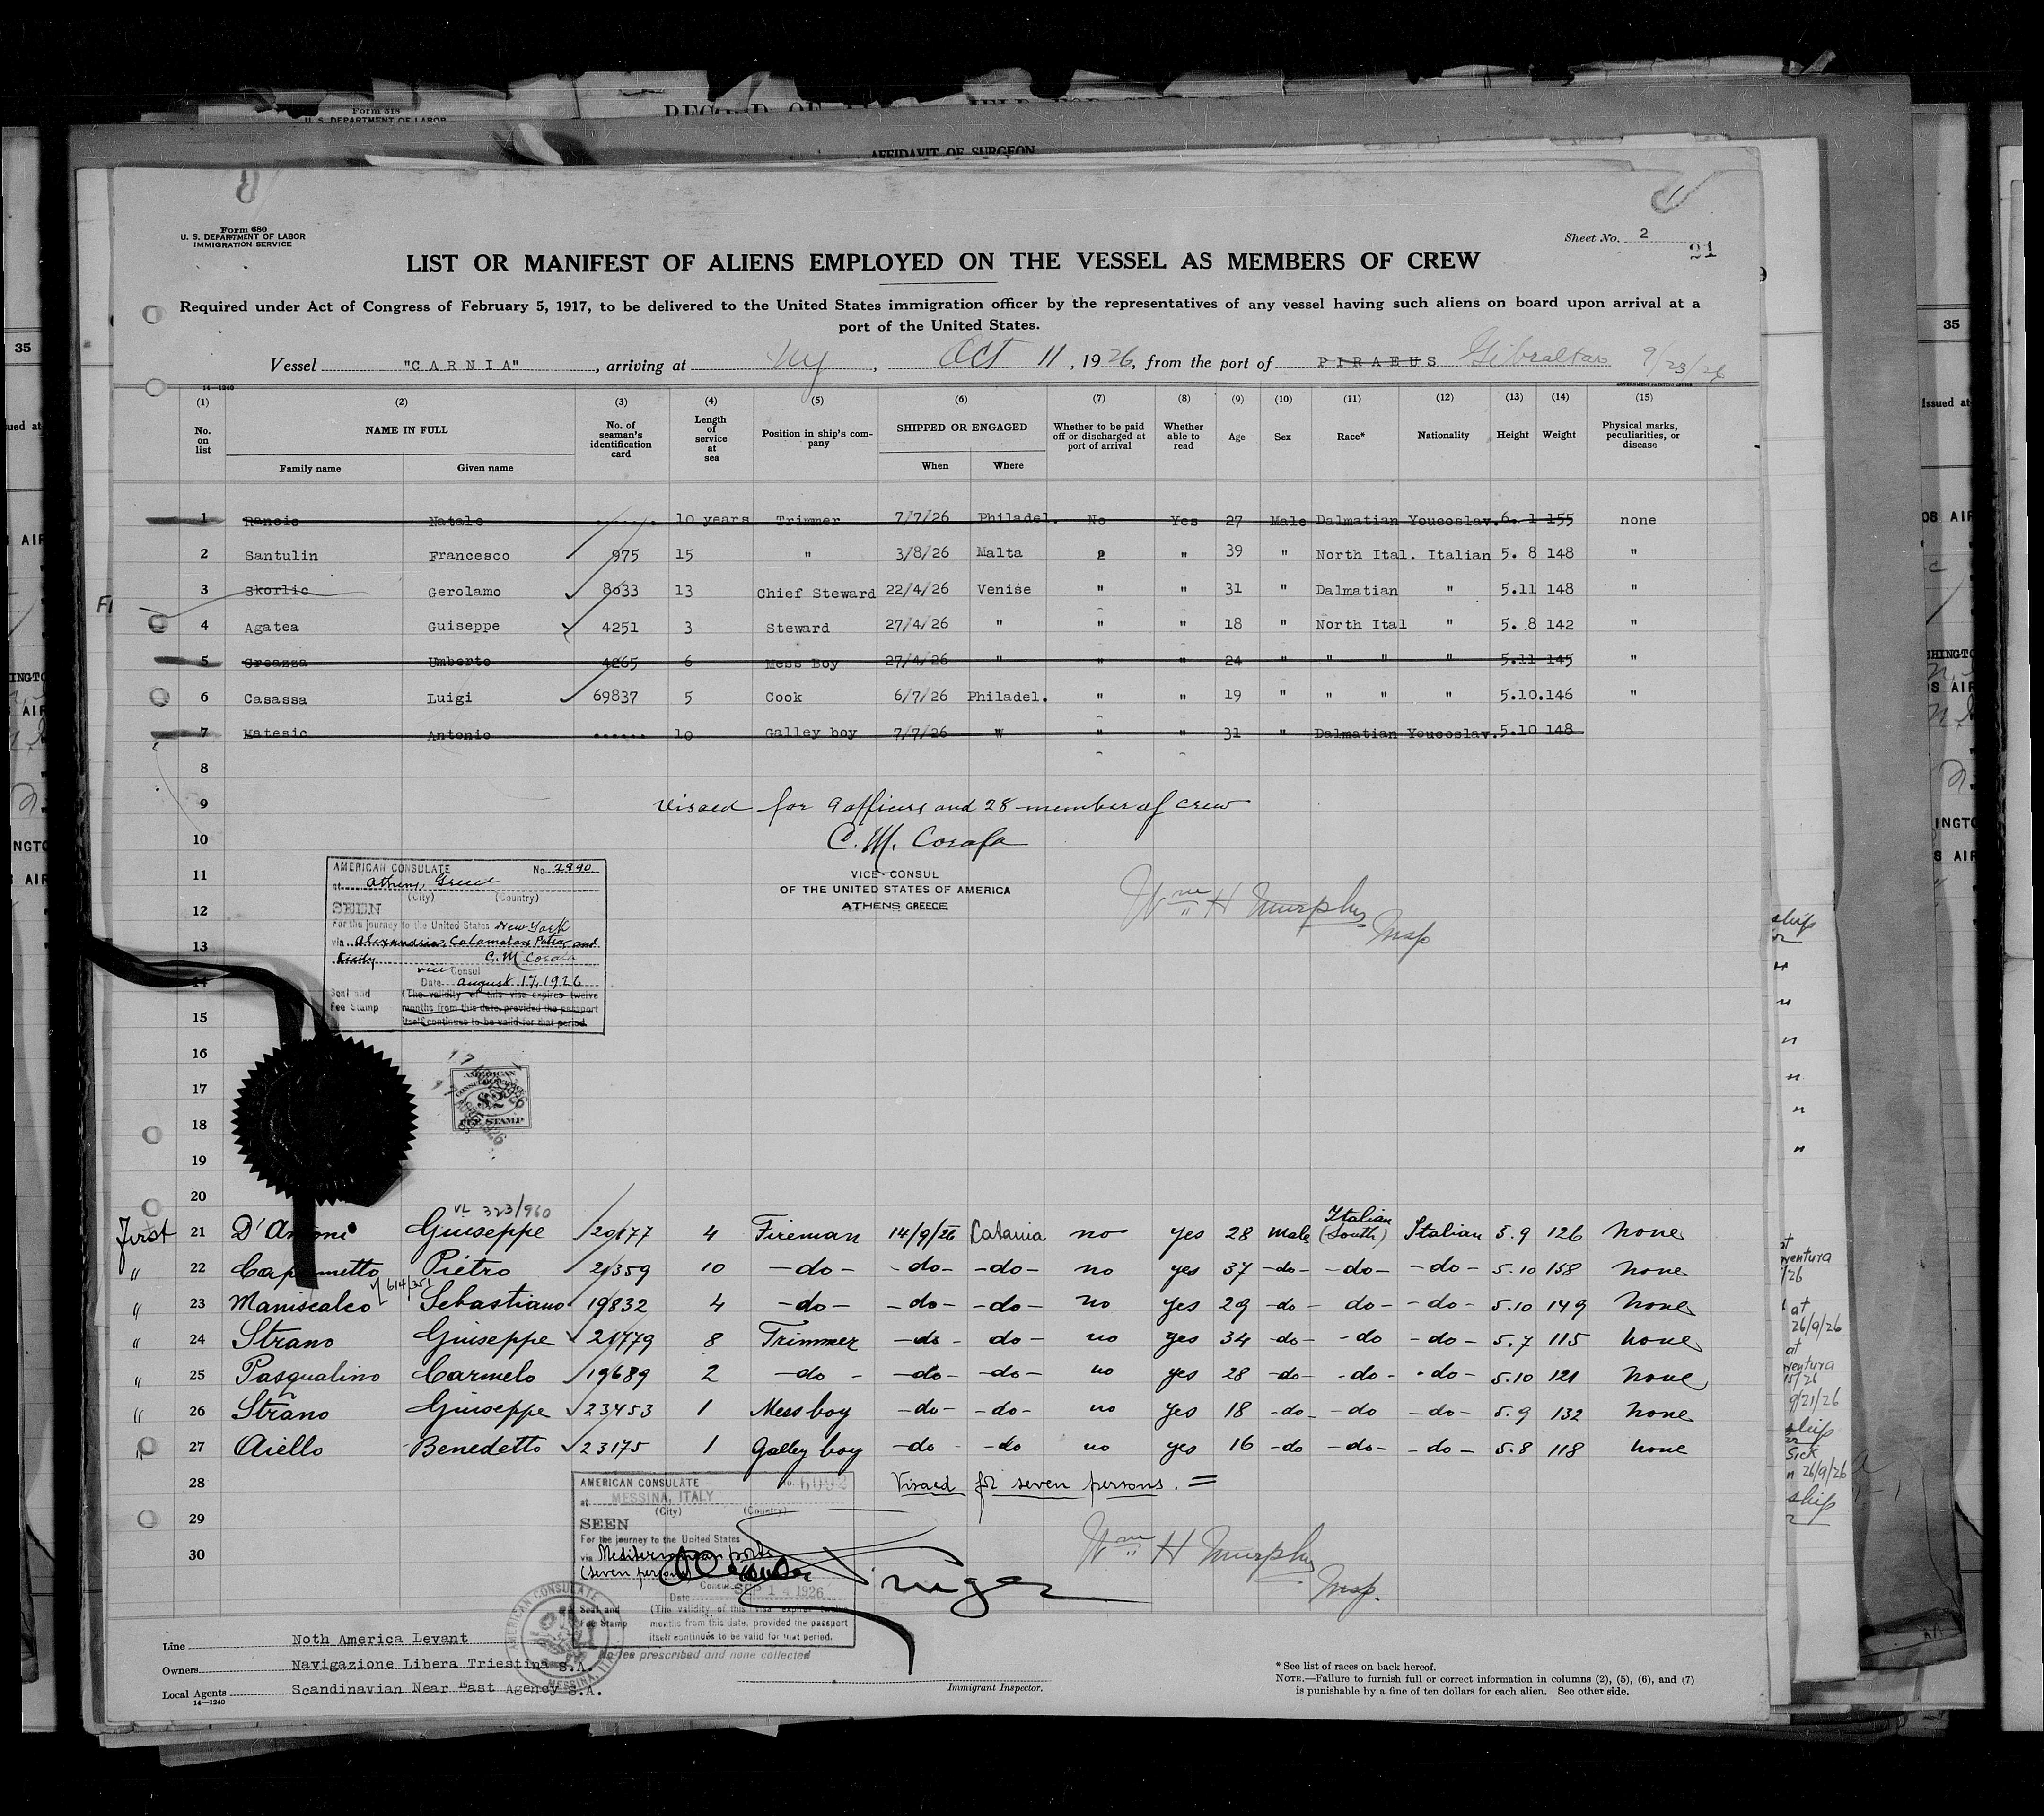 Form 518
U. S. DEPARTMENT OF LABOR
AFFIDAVIT OF SURGEON
Form 680
U. S. DEPARTMENT OF LABOR
IMMIGRATION SERVICE
Sheet No. 2
21
LIST OR MANIFEST OF ALIENS EMPLOYED ON THE VESSEL AS MEMBERS OF CREW
Required under Act of Congress of February 5, 1917, to be delivered to the United States immigration officer by the representatives of any vessel having such aliens on board upon arrival at a
port of the United States.
Vessel "CARNIA", arriving at NY, Oct 11, 1926, from the port of PIRAEUS Gibraltar 9/23/26
14—1240
(1) (2) (3) (4) (5) (6) (7) (8) (9) (10) (11) (12) (13) (14) (15)
No. on list
NAME IN FULL
Family name Given name
No. of seaman's identification card
Length of service at sea
Position in ship's company
SHIPPED OR ENGAGED
When Where
Whether to be paid off or discharged at port of arrival
Whether able to read
Age Sex Race* Nationality Height Weight
Physical marks, peculiarities, or disease
1 Rancic Natale ...... 10 years Trimmer 7/7/26 Philadel. No Yes 27 Male Dalmatian Yougoslav. 6. 1 155 none
2 Santulin Francesco 975 15 " 3/8/26 Malta " " 39 " North Ital. Italian 5. 8 148 "
3 Skorlic Gerolamo 8033 13 Chief Steward 22/4/26 Venise " " 31 " Dalmatian " 5.11 148 "
4 Agatea Guiseppe 4251 3 Steward 27/4/26 " " " 18 " North Ital " 5. 8 142 "
5 Greazza Umberto 4265 6 Mess Boy 27/4/26 " " " 24 " " " " 5.11 145 "
6 Casassa Luigi 69837 5 Cook 6/7/26 Philadel. " " 19 " " " " 5.10. 146 "
7 Matesic Antonio ...... 10 Galley boy 7/7/26 " " " 31 " Dalmatian Yougoslav. 5.10 148
8
9 Visaed for 9 officers and 28 member of crew
10 C. M. Corafa
11 VICE-CONSUL
OF THE UNITED STATES OF AMERICA
12 ATHENS GREECE
Wm H Murphy
Insp
AMERICAN CONSULATE No 2990
at Athens, Greece
(City) (Country)
SEEN
For the journey to the United States New York
via Alexandria, Calamata, Patras and
Sicily C. M. Corafa
vice Consul
Date August 17, 1926
Seal and Fee Stamp
(The validity of this visa expires twelve
months from this date, provided the passport
itself continues to be valid for that period.
13
14
15
16
17
AMERICAN
CONSULAR SERVICE
$2
FEE STAMP
18
19
20
VL 323/960
First 21 D'Antoni Giuseppe 20177 4 Fireman 14/9/26 Catania no yes 28 Male Italian (South) Italian 5.9 126 none
" 22 Pietro 21359 10 -do- -do- -do- no yes 37 -do- -do- -do- 5.10 158 none
614/351
" 23 Maniscalco Sebastiano 19832 4 -do- -do- -do- no yes 29 -do- do- -do- 5.10 149 none
" 24 Strano Giuseppe 21779 8 Trimmer -do- do- no yes 34 -do- -do -do- 5.7 115 none
" 25 Pasqualino Carmelo 19689 2 -do- -do- -do- no yes 28 -do- -do- -do- 5.10 121 none
" 26 Strano Giuseppe 23453 1 Mess boy -do- -do- no yes 18 -do- -do -do- 5.9 132 none
" 27 Aiello Benedetto 23175 1 Galley boy -do- -do no yes 16 -do -do- -do- 5.8 118 none
28 Visaed for seven persons. =
29
30
AMERICAN CONSULATE No. 6092
at MESSINA, ITALY
(City) (Country)
SEEN
For the journey to the United States
via Mediterranean ports
(seven persons)
Consul
Date SEP 14 1926
Seal and Fee Stamp
(The validity of this visa expires twelve
months from this date, provided the passport
itself continues to be valid for that period.
No fee prescribed and none collected
AMERICAN CONSULATE
MESSINA, ITALY
Wm H Murphy
Insp.
Line Noth America Levant
Owners Navigazione Libera Triestina S.A.
Local Agents Scandinavian Near East Agency S.A.
14—1240
Immigrant Inspector.
* See list of races on back hereof.
NOTE.—Failure to furnish full or correct information in columns (2), (5), (6), and (7)
is punishable by a fine of ten dollars for each alien. See other side.